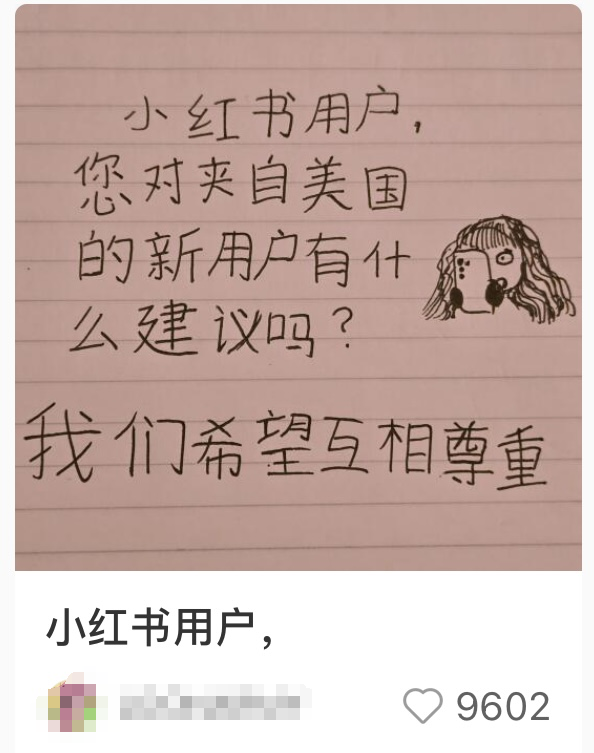 小红书用户，
您对夹自美国
的新用户有什
么建议吗？
我们希望互相尊重
小红书用户，
9602